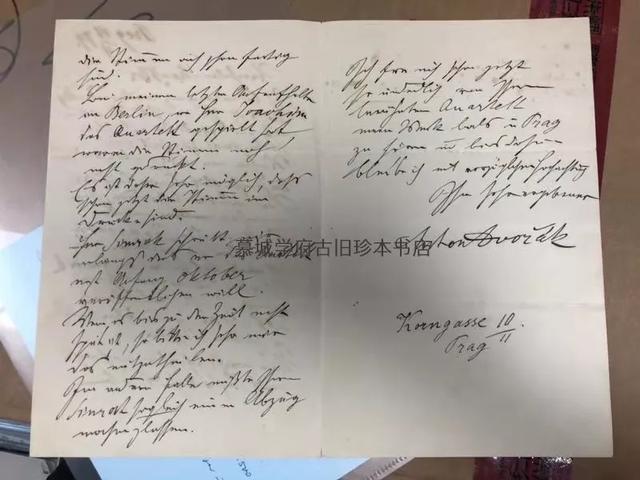 die Stimmen nich schon fertig
sind.
Bei meinem letzten Aufenthalte
in Berlin, wo Herr Joachim
das Quartett gespielt hat
waren die Stimmen noch
nicht gedruckt.
Es ist daher sehr möglich, dass
schon jetzt die Stimmen im
Drucke sind.
Herr Simrock schrieb mir
unlängst dass er das Quartett
erst Anfang Oktober
veröffentlichen will.
Wenn es bis zu der Zeit nicht
spät ist, so bitte ich sehr mir
das mitzutheilen.
Im andern Falle müßte Ihnen
Simrock sogleich einen Abzug
machen lassen.
Ich freu mich schon jetzt
unendlich von Ihrem
berühmten Quartett
mein Werk bald in Prag
zu hören und bis dahin
bleibe ich mit vorzüglicher Hochachtung
Ihr sehr ergebener
Anton Dvořák
Korngasse 10/II
Prag
慕城学府古旧珍本书店